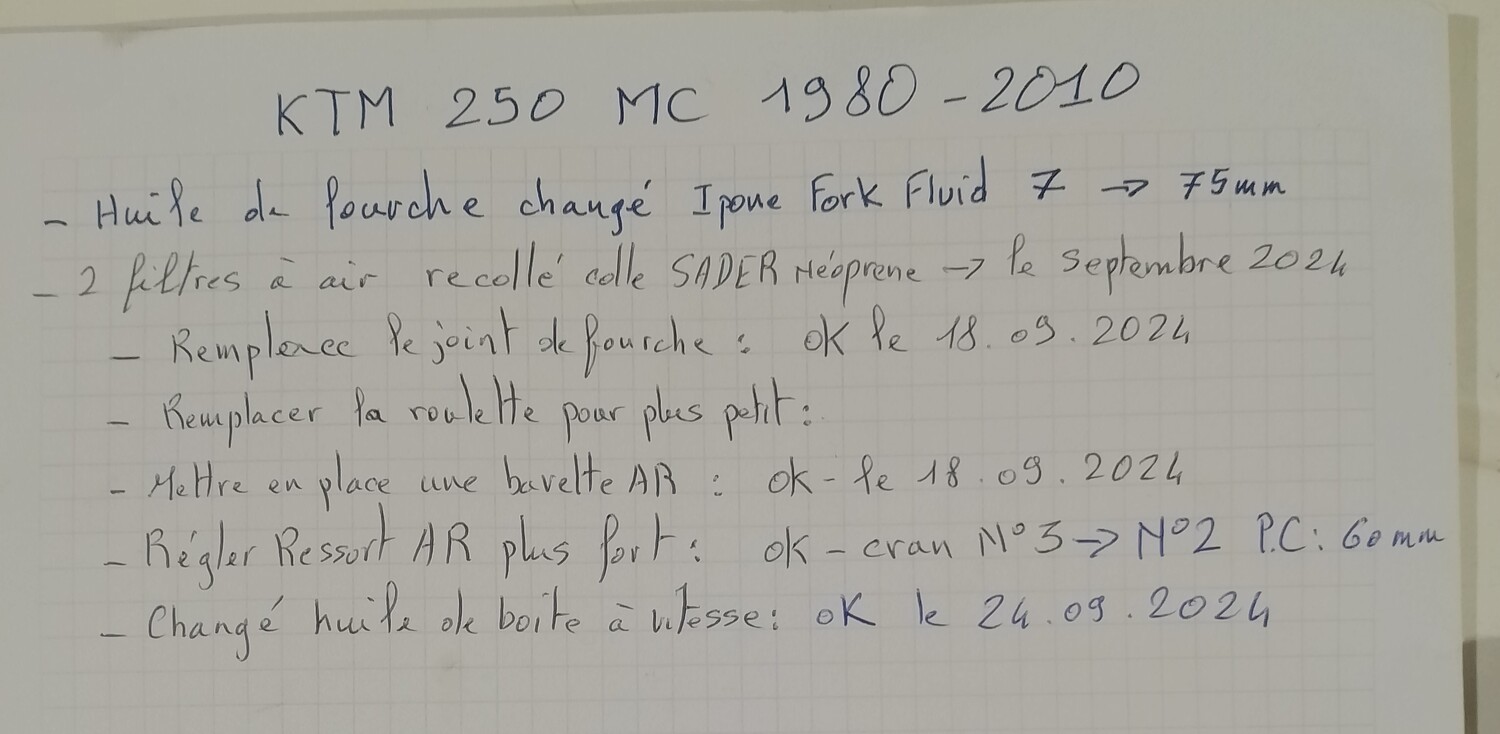 KTM 250 MC 1980-2010
- Huile de fourche changé Ipone Fork Fluid 7 → 75mm
- 2 filtres à air recollé colle SADER Néoprene → le Septembre 2024
- Remplacee le joint de fourche : ok le 18.09.2024
- Remplacer la roulette pour plus petit :
- Mettre en place une bavette AR : ok - le 18.09.2024
- Régler Ressort AR plus fort : ok - cran N°3 → N°2 P.C: 60mm
- Changé huile de boite à vitesse : ok le 24.09.2024